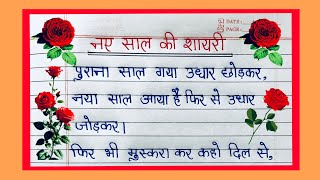 DATE:
PAGE:
नए साल की शायरी
पुराना साल गया उधार छोड़कर,
नया साल आया है फिर से उधार
जोड़कर।
फिर भी मुस्करा कर कहो दिल से,